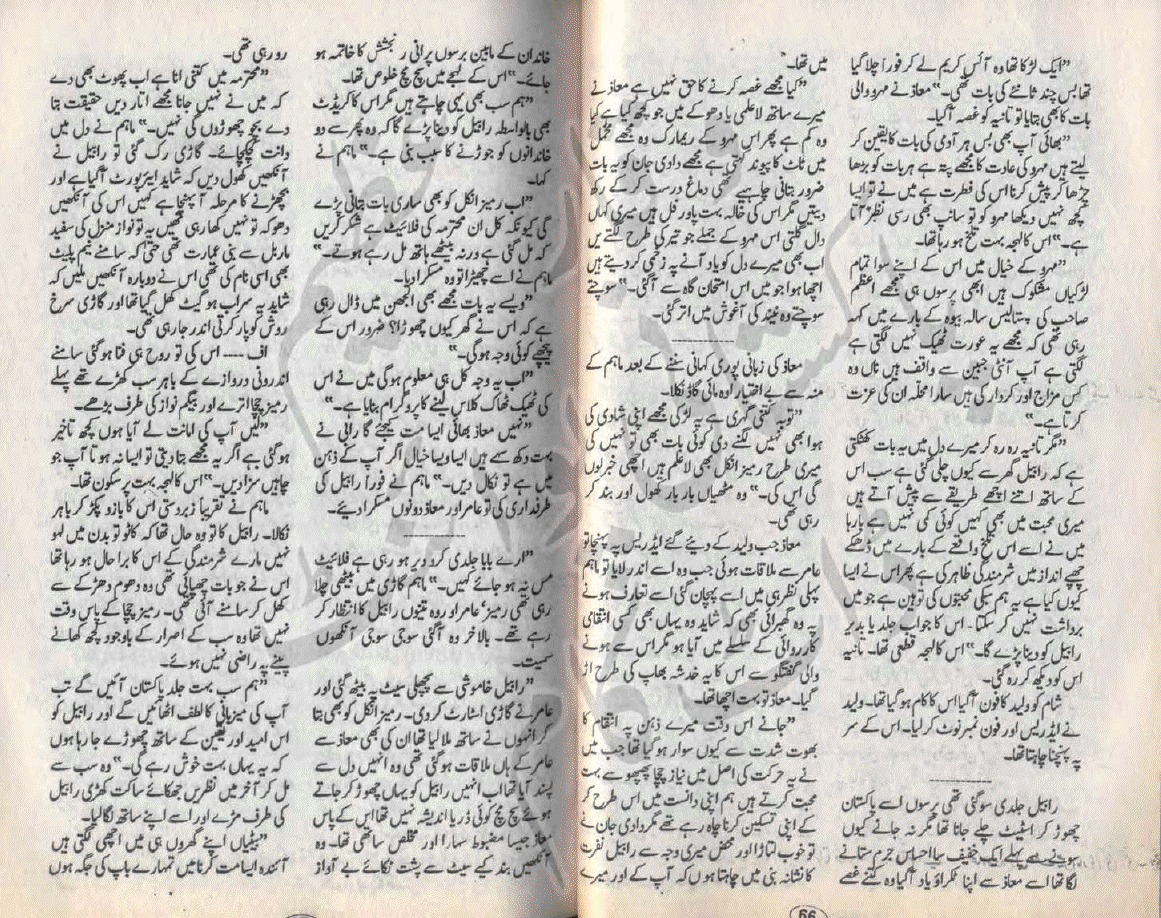 ”ایک لڑکا تھا وہ آئس کریم لے کر فوراً چلا گیا
تھا بس چند ثانئے کی بات تھی۔“ معاذ نے مہرو والی
بات کا بھی بتایا تو ثانیہ کو غصہ آگیا۔
”بھائی آپ بھی بس ہر آدمی کی بات کا یقین کر
لیتے ہیں مہرو کی عادت کا مجھے پتہ ہے ہر بات کو بڑھا
چڑھا کر پیش کرنا اس کی فطرت ہے میں نے تو ایسا
کچھ نہیں دیکھا مہرو کو تو سانپ بھی رسی نظر آتا
ہے۔“ اس کا لہجہ بہت تلخ ہو رہا تھا۔
”مہرو کے خیال میں اس کے اپنے سوا تمام
لڑکیاں مشکوک ہیں ابھی پرسوں ہی مجھے اعظم
صاحب کی پینتالیس سالہ بیوہ کے بارے میں کہہ
رہی تھی کہ مجھے یہ عورت ٹھیک نہیں لگتی ہے
لگتی ہے آپ آنٹی جبیں سے واقف ہیں ناں وہ
کس مزاج اور کردار کی ہیں سارا محلہ ان کی عزت
کرتا ہے۔“
”مگر ثانیہ رہ رہ کر میرے دل میں یہ بات کھٹکتی
ہے کہ رابیل گھر سے کیوں چلی گئی ہے سب اس
کے ساتھ اتنے اچھے طریقے سے پیش آتے ہیں
میری محبت میں بھی کہیں کوئی کمی نہیں ہے بارہا
میں نے اسے اس تلخ واقعے کے بارے میں ڈھکے
چھپے انداز میں شرمندگی ظاہر کی ہے پھر اس نے ایسا
کیوں کیا ہے یہ ہم سب کی محبتوں کی توہین ہے جو میں
برداشت نہیں کر سکتا۔ اس کا جواب جلد یا بدیر
رابیل کو دینا پڑے گا۔“ اس کا لہجہ قطعی تھا۔ ثانیہ
اس کو دیکھ کر رہ گئی۔
شام کو ولید کا فون آگیا اس کا کام ہو گیا تھا۔ ولید
نے ایڈریس اور فون نمبر نوٹ کر لیا۔ اس کے سر
پہ پہنچنا چاہتا تھا۔
رابیل جلدی سو گئی تھی پرسوں اسے پاکستان
چھوڑ کر اسٹیٹ چلے جانا تھا مگر نہ جانے کیوں
سونے سے پہلے ایک خفیف سا احساس جرم ستانے
لگا تھا اسے معاذ سے اپنا ٹکراؤ یاد آگیا وہ کتنے غصے
میں تھا۔
”کیا مجھے غصہ کرنے کا حق نہیں ہے معاذ نے
میرے ساتھ لاعلمی یا دھوکے میں جو کچھ کیا ہے کیا
وہ کم ہے پھر اس مہرو کے ریمارک وہ مجھے مخمل
میں ٹاٹ کا پیوند کہتی ہے مجھے دادی جان کو یہ بات
ضرور بتانی چاہیے تھی دماغ درست کر کے رکھ
دیتیں مگر اس کی خالہ بہت پاور فل ہیں میری کہاں
دال گلتی اس مہرو کے جملے جو تیر کی طرح لگتے ہیں
اب بھی میرے دل کو یاد آنے پہ زخمی کر دیتے ہیں
اچھا ہوا جو میں اس امتحان گاہ سے آ گئی۔“ سوچتے
سوچتے وہ نیند کی آغوش میں اتر گئی۔
معاذ کی زبانی پوری کہانی سننے کے بعد ماہم کے
منہ سے بے اختیار اوہ مائی گاڈ نکلا۔
”توبہ کتنی گہری ہے یہ لڑکی مجھے اپنی شادی کی
ہوا بھی نہیں لگنے دی کوئی بات بھی تو نہیں کی
میری طرح رمیز انکل بھی لاعلم ہیں اچھی خبر لوں
گی اس کی۔“ وہ مٹھیاں بار بار کھول اور بند کر
رہی تھی۔
معاذ جب ولید کے دیئے گئے ایڈریس پہ پہنچا تو
عامر سے ملاقات ہوئی جب وہ اسے اندر لایا تو ماہم
پہلی نظر ہی میں اسے پہچان گئی اسے تعارف ہونے
پہ وہ گھبرائی بھی کہ شاید وہ یہاں بھی کسی انتقامی
کارروائی کے سلسلے میں آیا ہو مگر اس سے ہونے
والی گفتگو سے اس کا یہ خدشہ بھاپ کی طرح اڑ
گیا۔ معاذ تو بہت اچھا تھا۔
”جانے اس وقت میرے ذہن پہ انتقام کا
بھوت شدت سے کیوں سوار ہو گیا تھا جب میں
نے یہ حرکت کی اصل میں نیاز چچا پھپھو سے بہت
محبت کرتے ہیں ہم اپنی دانست میں اس طرح کر
کے اپنی تسکین کرنا چاہ رہے تھے مگر دادی جان نے
تو خوب لتاڑا اور محض میری وجہ سے رابیل نفرت
کا نشانہ بنی میں چاہتا ہوں کہ آپ کے اور میرے
خاندان کے مابین برسوں پرانی رنجش کا خاتمہ ہو
جائے۔“ اس کے لہجے میں سچ مچ خلوص تھا۔
”ہم سب بھی یہی چاہتے ہیں مگر اس کا کریڈٹ
بھی بالواسطہ رابیل کو دینا پڑے گا کہ وہ پھر سے دو
خاندانوں کو جوڑنے کا سبب بنی ہے۔“ ماہم نے
کہا۔
”اب رمیز انکل کو بھی ساری بات بتانی پڑے
گی کیونکہ کل ان محترمہ کی فلائیٹ ہے شکر کریں
کہ مل گئی ہے ورنہ بیٹھے ہاتھ مل رہے ہوتے۔“
ماہم نے اسے چھیڑا تو وہ مسکرا دیا۔
”ویسے یہ بات مجھے بھی الجھن میں ڈال رہی
ہے کہ اس نے گھر کیوں چھوڑا؟ ضرور اس کے
پیچھے کوئی وجہ ہو گی۔“
”اب یہ وجہ کل ہی معلوم ہو گی میں نے اس
کی ٹھیک ٹھاک کلاس لینے کا پروگرام بنایا ہے۔“
”نہیں معاذ بھائی ایسا مت کیجئے گا رابی نے
بہت دکھ سہے ہیں ایسا ویسا خیال اگر آپ کے ذہن
میں ہے تو نکال دیں۔“ ماہم نے فوراً رابیل کی
طرفداری کی تو عامر اور معاذ دونوں مسکرا دیئے۔
”ارے بابا جلدی کرو دیر ہو رہی ہے فلائیٹ
مس نہ ہو جائے کہیں۔“ ماہم گاڑی میں بیٹھی چلا
رہی تھی رمیز‘ عامر اور وہ تینوں رابیل کا انتظار کر
رہے تھے۔ بالآخر وہ آ گئی سوجی سوجی آنکھوں
سمیت۔
”رابیل خاموشی سے پچھلی سیٹ پہ بیٹھ گئی اور
عامر نے گاڑی اسٹارٹ کر دی۔ رمیز انکل کو بھی بتا
کر انہوں نے ساتھ ملا لیا تھا ان کی بھی معاذ سے
عامر کے ہاں ملاقات ہو گئی تھی وہ انہیں دل سے
پسند آیا تھا اب انہیں رابیل کو یہاں چھوڑ کر جاتے
ہوئے سچ مچ کوئی ڈر یا اندیشہ نہیں تھا اس کے پاس
معاذ جیسا مضبوط سہارا اور مخلص ساتھی تھا۔ وہ
آنکھیں بند کیے سیٹ سے پشت ٹکائے بے آواز
رو رہی تھی۔
”محترمہ میں کتنی انا ہے اب پھوٹ بھی دے
کہ میں نے نہیں جانا مجھے اتار دیں حقیقت بتا
دے بچو چھوڑوں گی نہیں۔“ ماہم نے دل میں
دانت کچکچائے۔ گاڑی رک گئی تو رابیل نے
آنکھیں کھول دیں کہ شاید ایئر پورٹ آگیا ہے اور
بچھڑنے کا مرحلہ آ پہنچا ہے کہیں اس کی آنکھیں
دھوکہ تو نہیں کھا رہی تھیں یہ تو نواز منزل کی سفید
ماربل سے بنی عمارت تھی حتیٰ کہ سامنے نیم پلیٹ
بھی اسی نام کی تھی اس نے دوبارہ آنکھیں ملیں کہ
شاید یہ سراب ہو گیٹ کھل گیا تھا اور گاڑی سرخ
روش کو پار کرتی اندر جا رہی تھی۔
اف ---- اس کی تو روح ہی فنا ہو گئی سامنے
اندرونی دروازے کے باہر سب کھڑے تھے پہلے
رمیز چچا اترے اور بیگم نواز کی طرف بڑھے۔
”لیں آپ کی امانت لے آیا ہوں کچھ تاخیر
ہو گئی ہے اگر یہ مجھے بتا دیتی تو ایسا نہ ہوتا آپ جو
چاہیں سزا دیں۔“ اس کا لہجہ بہت پرسکون تھا۔
ماہم نے تقریباً زبردستی اس کا بازو پکڑ کر باہر
نکالا۔ رابیل کا تو وہ حال تھا کہ کاٹو تو بدن میں لہو
نہیں مارے شرمندگی کے اس کا برا حال ہو رہا تھا
اس نے جو بات چھپائی تھی وہ دھوم دھڑکے سے
کھل کر سامنے آئی تھی۔ رمیز چچا کے پاس وقت
نہیں تھا وہ سب کے اصرار کے باوجود کچھ کھانے
پینے پہ راضی نہیں ہوئے۔
”ہم سب بہت جلد پاکستان آئیں گے تب
آپ کی میزبانی کا لطف اٹھائیں گے اور رابیل کو
اس امید اور یقین کے ساتھ چھوڑے جا رہا ہوں
کہ یہ یہاں بہت خوش رہے گی۔“ وہ سب سے
مل کر آخر میں نظریں جھکائے ساکت کھڑی رابیل
کی طرف مڑے اور اسے اپنے ساتھ لگا لیا۔
”بیٹیاں اپنے گھروں ہی میں اچھی لگتی ہیں
آئندہ ایسا مت کرنا میں تمہارے باپ کی جگہ ہوں
66